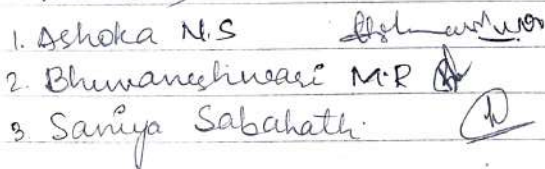 1. Ashoka N.S
2. Bhuvaneshwari M.R
3. Saniya Sabahath.